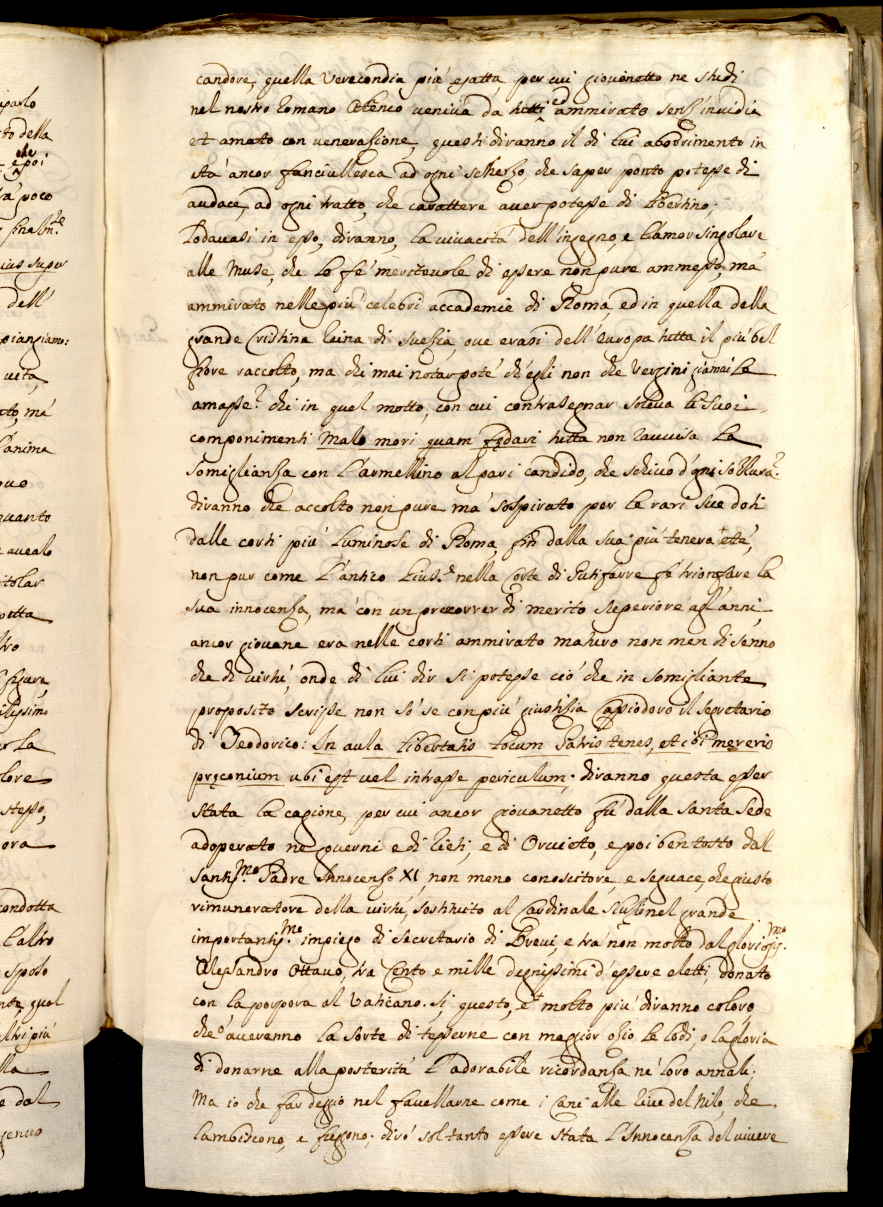 aparlo
to della
e poi che
rà poco
finalm.te
ius super
dell'
piangiamo:
uita,
to, mà
l'anima
ouo
quanto
auealo
itolar
petta
tro
figura,
er la
lore
stesso,
ora
condotta
l'altro
sposo
nte, qual
altri più
lla
e dal
genuo
candore, quella verecondia più esatta, per cui giovinetto ne studi
nel nostro Romano Ateneo veniva da tutti ed ammirato senz'invidia
et amato con venerazione, questi diranno il di lui abborrimento in
età ancor fanciullesca ad ogni scherzo, che saper ponto potesse di
audace, ad ogni tratto, che carattere aver potesse di libertino;
Lodauasi in esso, diranno, la viuacità dell'ingegno, e l'amor singolare
alle Muse, che lo fé meriteuole di essere non pure ammesso, mà
ammirato nelle più celebri accademie di Roma, ed in quella della
grande Cristina Reina di Suezia, oue erasi dell'Europa tutta il più bel
fiore raccolto, ma chi mai notar poté ch'egli non che Vergini giamai le
amasse? chi in quel motto, con cui contrasegnar soleua li suoi
componimenti Malo mori quam fędari tutta non rauuisa la
somiglianza con l'armellino al pari candido, che schiuo d'ogni sozzura?
diranno che accolto non pure ma' sospirato per le rari sue doti
dalle corti più luminose di Roma, fin dalla sua più tenera età,
non pur come l'antico Gius.e nella Corte di Putifarre fé trionfare la
sua innocenza, mà con un precorrer di merito superiore agl'anni,
ancor giouane era nelle corti ammirato maturo non men di senno
che di virtù, onde di lui dir si potesse ciò che in somigliante
proposito scrisse non sò se con più giustizia Cassiodoro il segretario
di Teodorico: In aula libertatis locum Patris tenes, et ibi mereris
pręconium ubi est uel intrasse periculum; diranno questa esser
stata la cagione, per cui ancor giouanetto fù dalla Santa Sede
adoperato ne gouerni e di Rieti, e di Oruieto, e poi ben tosto dal
Santiss.mo Padre Innocenzo XI, non meno conoscitore, e seguace, che giusto
rimuneratore della virtù, sostituito al Cardinale Slusio nel grande
importantiss.mo impiego di Secretario di Breui, e trà non molto dal glorios.mo
Alessandro Ottauo, trà cento e mille degnissimi d'essere eletti, donato
con la porpora al Vaticano. Sì, questo, et molto più diranno coloro
che aueranno la sorte di tesserne con maggior ozio le lodi, o la gloria
di donarne alla posterità l'adorabile ricordanza ne' loro annali.
Ma io che far deggio nel fauellarne come i cani alle riue del nilo, che
lambiscono, e fuggono; dirò soltanto essere stata l'Innocenza del viuere